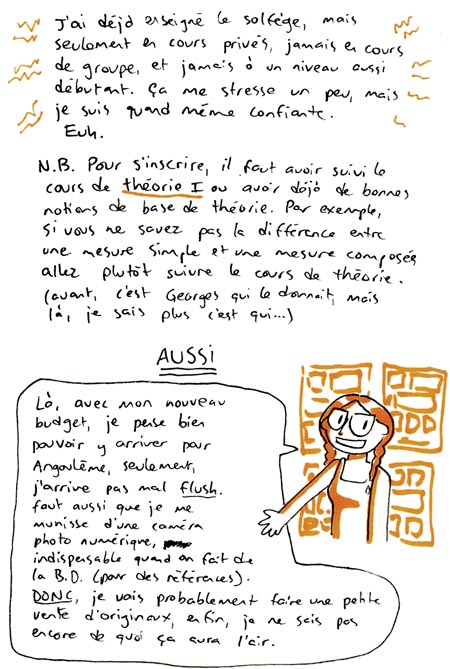 J'ai déjà enseigné le solfège, mais
seulement en cours privés, jamais en cours
de groupe, et jamais à un niveau aussi
débutant. Ça me stresse un peu, mais
je suis quand même confiante.
Euh.
N.B. Pour s'inscrire, il faut avoir suivi le
cours de théorie I ou avoir déjà de bonnes
notions de base de théorie. Par exemple,
si vous ne savez pas la différence entre
une mesure simple et une mesure composée
allez plutôt suivre le cours de théorie.
(avant, c'est Georges qui le donnait, mais
là, je sais plus c'est qui...)
AUSSI
Là, avec mon nouveau
budget, je pense bien
pouvoir y arriver pour
Angoulême, seulement,
j'arrive pas mal flush.
faut aussi que je me
munisse d'une caméra
photo numérique,
indispensable quand on fait de
la B.D. (pour des références).
DONC, je vais probablement faire une petite
vente d'originaux, enfin, je ne sais pas
encore de quoi ça aura l'air.